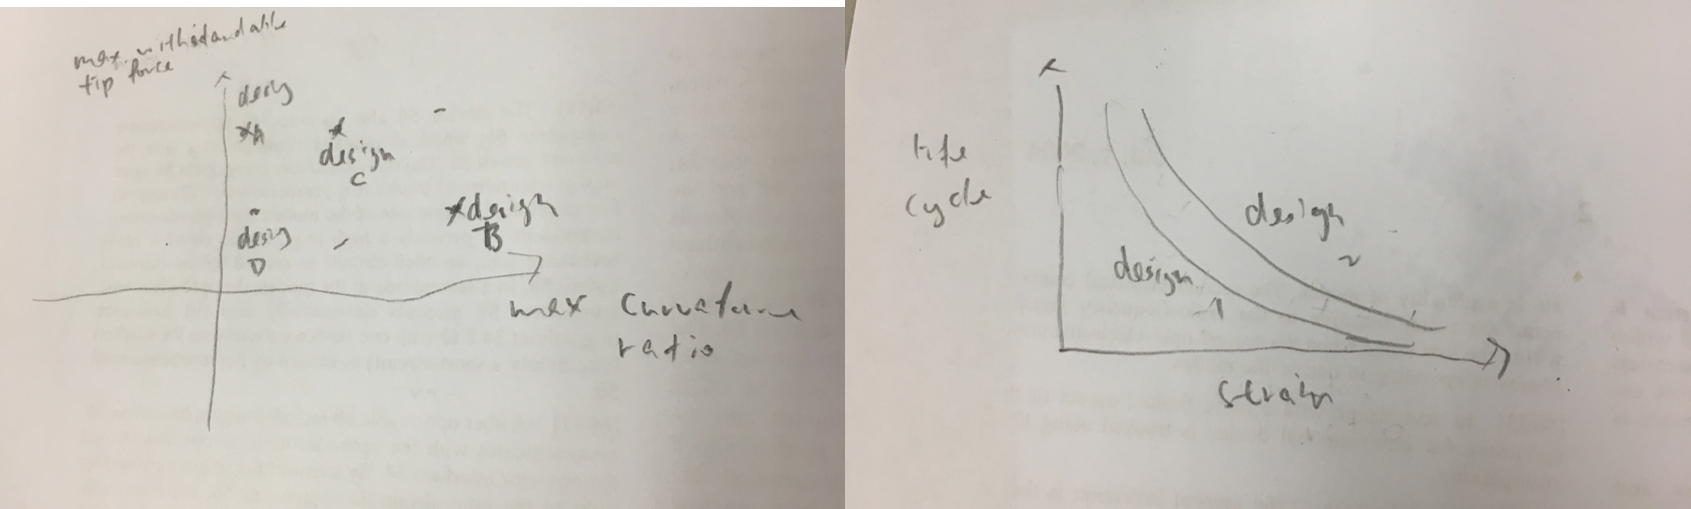 max. withstandable
tip force
desig
A
design
C
desig
D
design
B
max curvature
ratio
life
cycle
design
2
design
1
strain